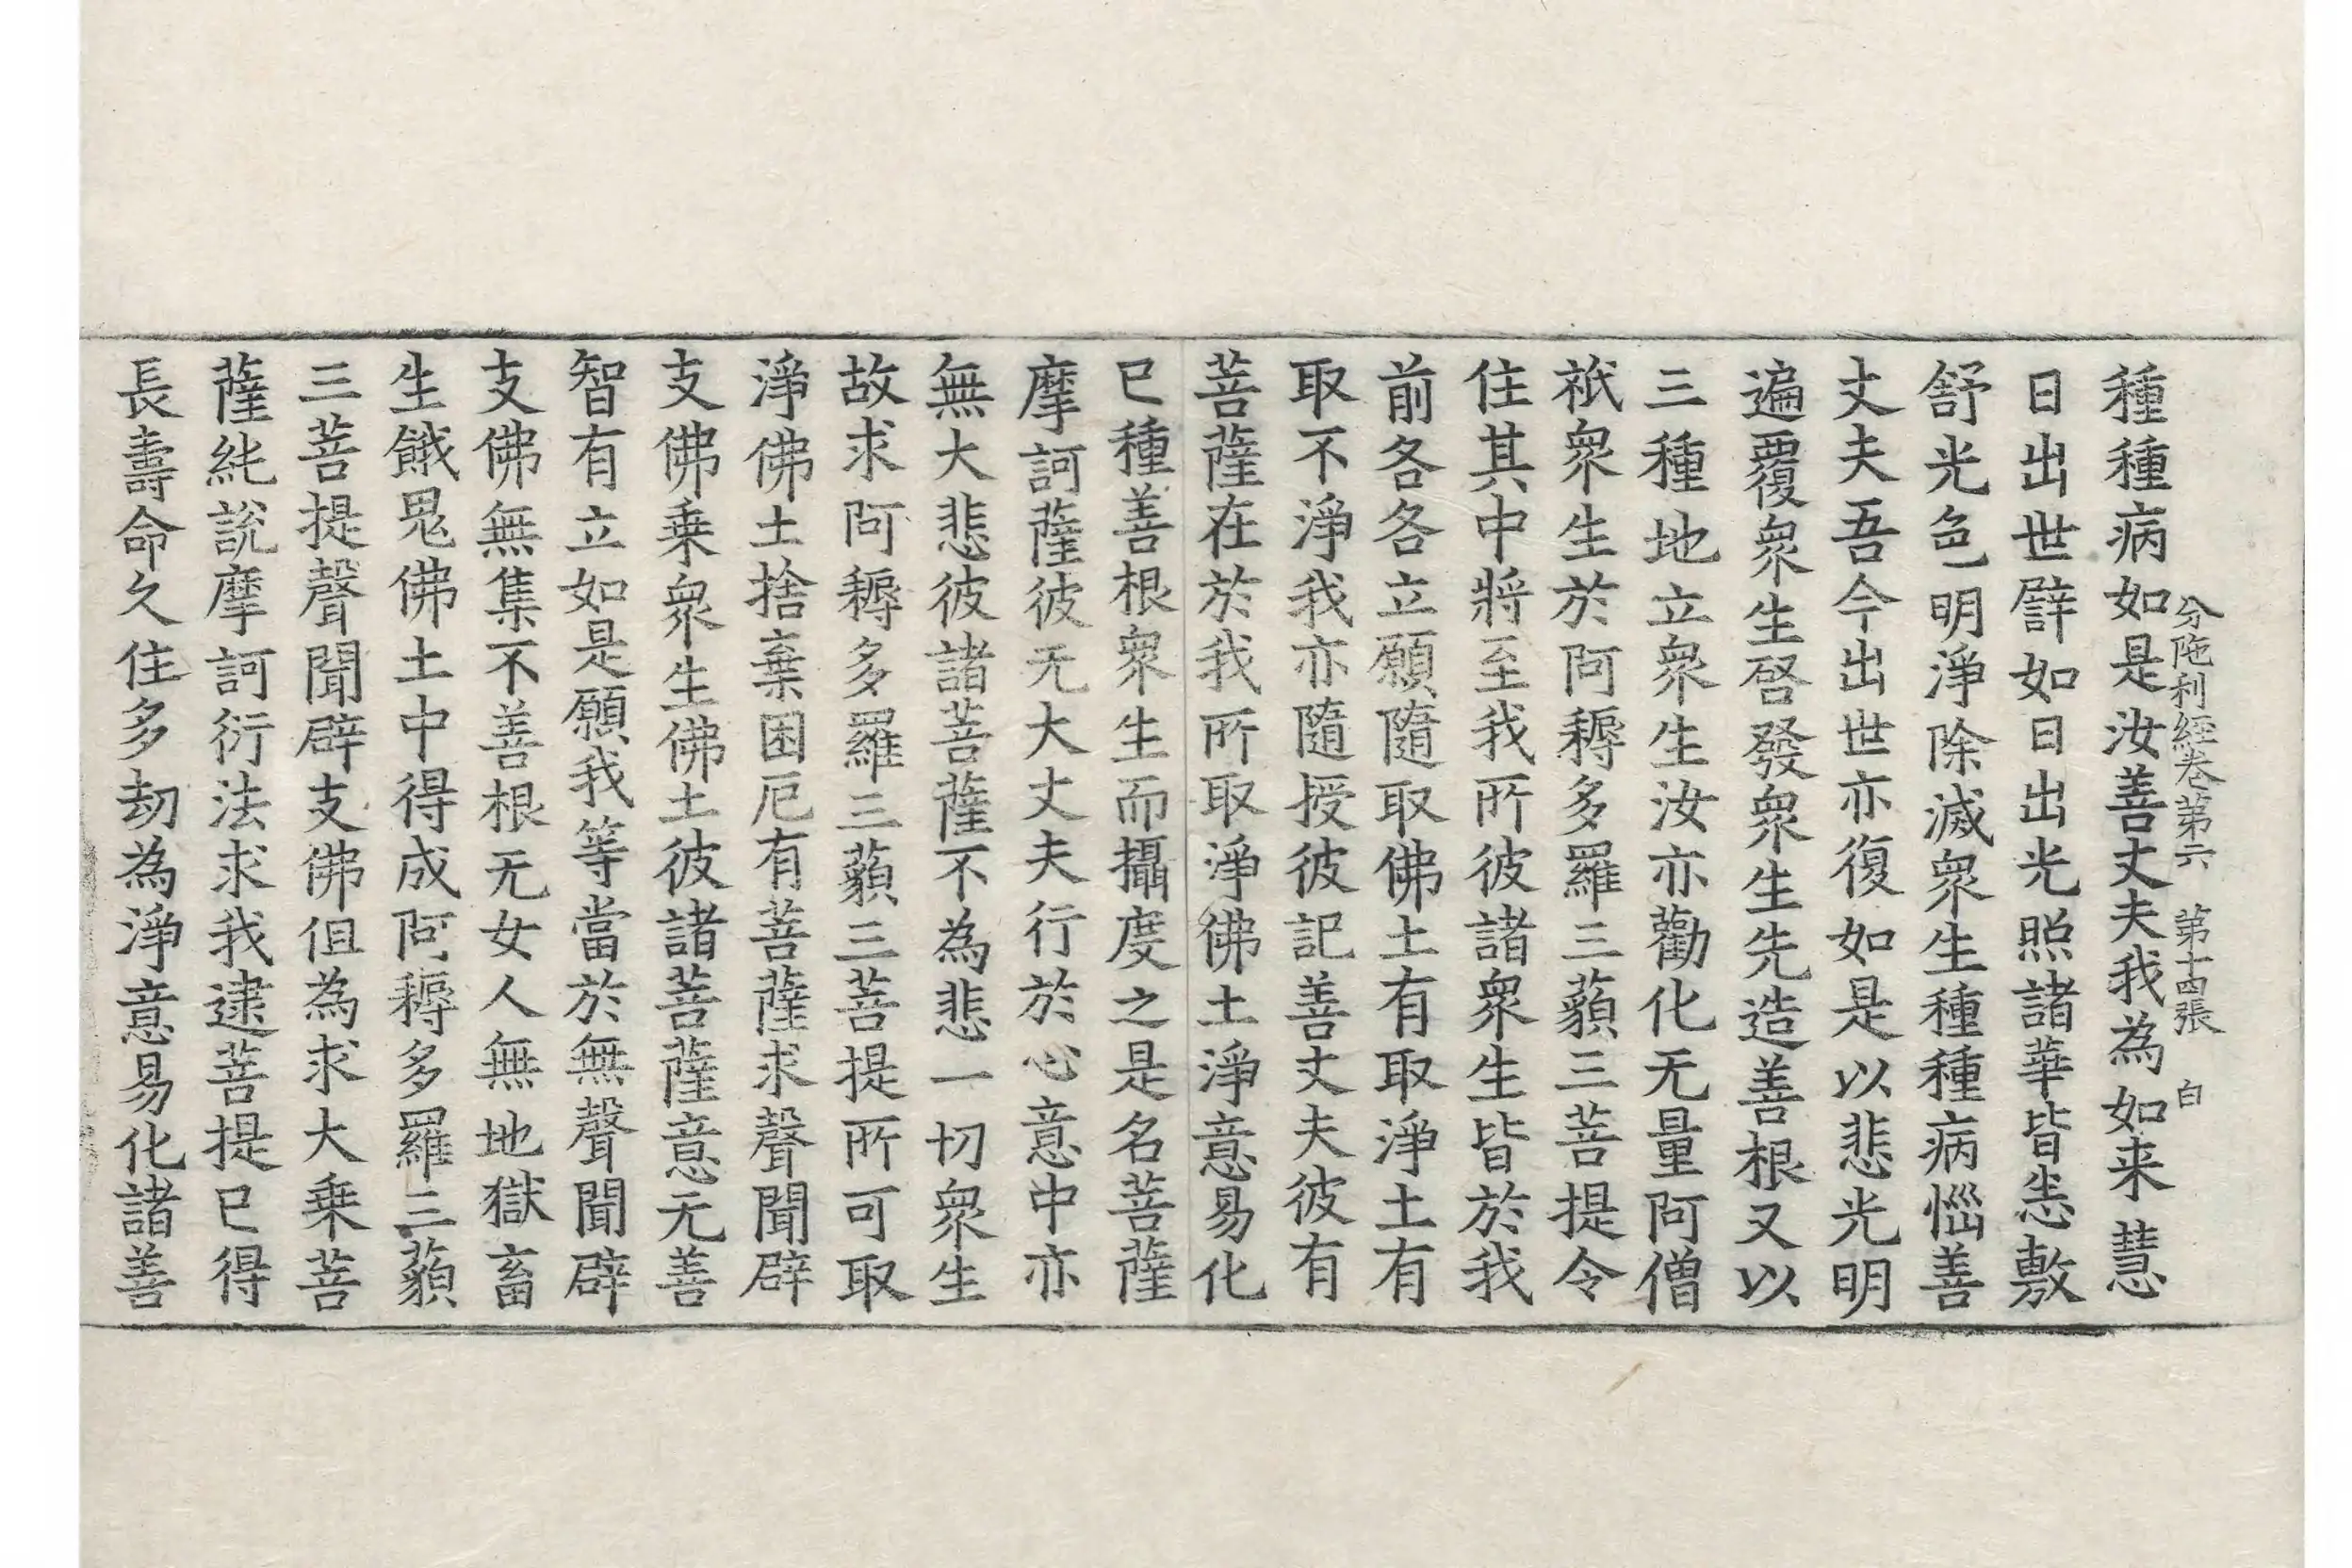 分陁利経卷第六　第十四張　白
種種病如是汝善丈夫我為如来慧
日出世譬如日出光照諸華皆悉敷
舒光色明淨除滅衆生種種病惱善
丈夫吾今出世亦復如是以悲光明
遍覆衆生啓發衆生先造善根又以
三種地立衆生汝亦勸化无量阿僧
祇衆生於阿耨多羅三藐三菩提令
住其中將至我所彼諸衆生皆於我
前各各立願隨取佛土有取淨土有
取不淨我亦隨授彼記善丈夫彼有
菩薩在於我所取淨佛土淨意易化
已種善根衆生而攝度之是名菩薩
摩訶薩彼无大丈夫行於心意中亦
無大悲彼諸菩薩不為悲一切衆生
故求阿耨多羅三藐三菩提所可取
淨佛土捨棄困厄有菩薩求聲聞辟
支佛乗衆生佛土彼諸菩薩意无善
智有立如是願我等當於無聲聞辟
支佛無集不善根无女人無地獄畜
生餓鬼佛土中得成阿耨多羅三藐
三菩提聲聞辟支佛但為求大乗菩
薩純說摩訶衍法求我逮菩提已得
長壽命久住多劫為淨意易化諸善